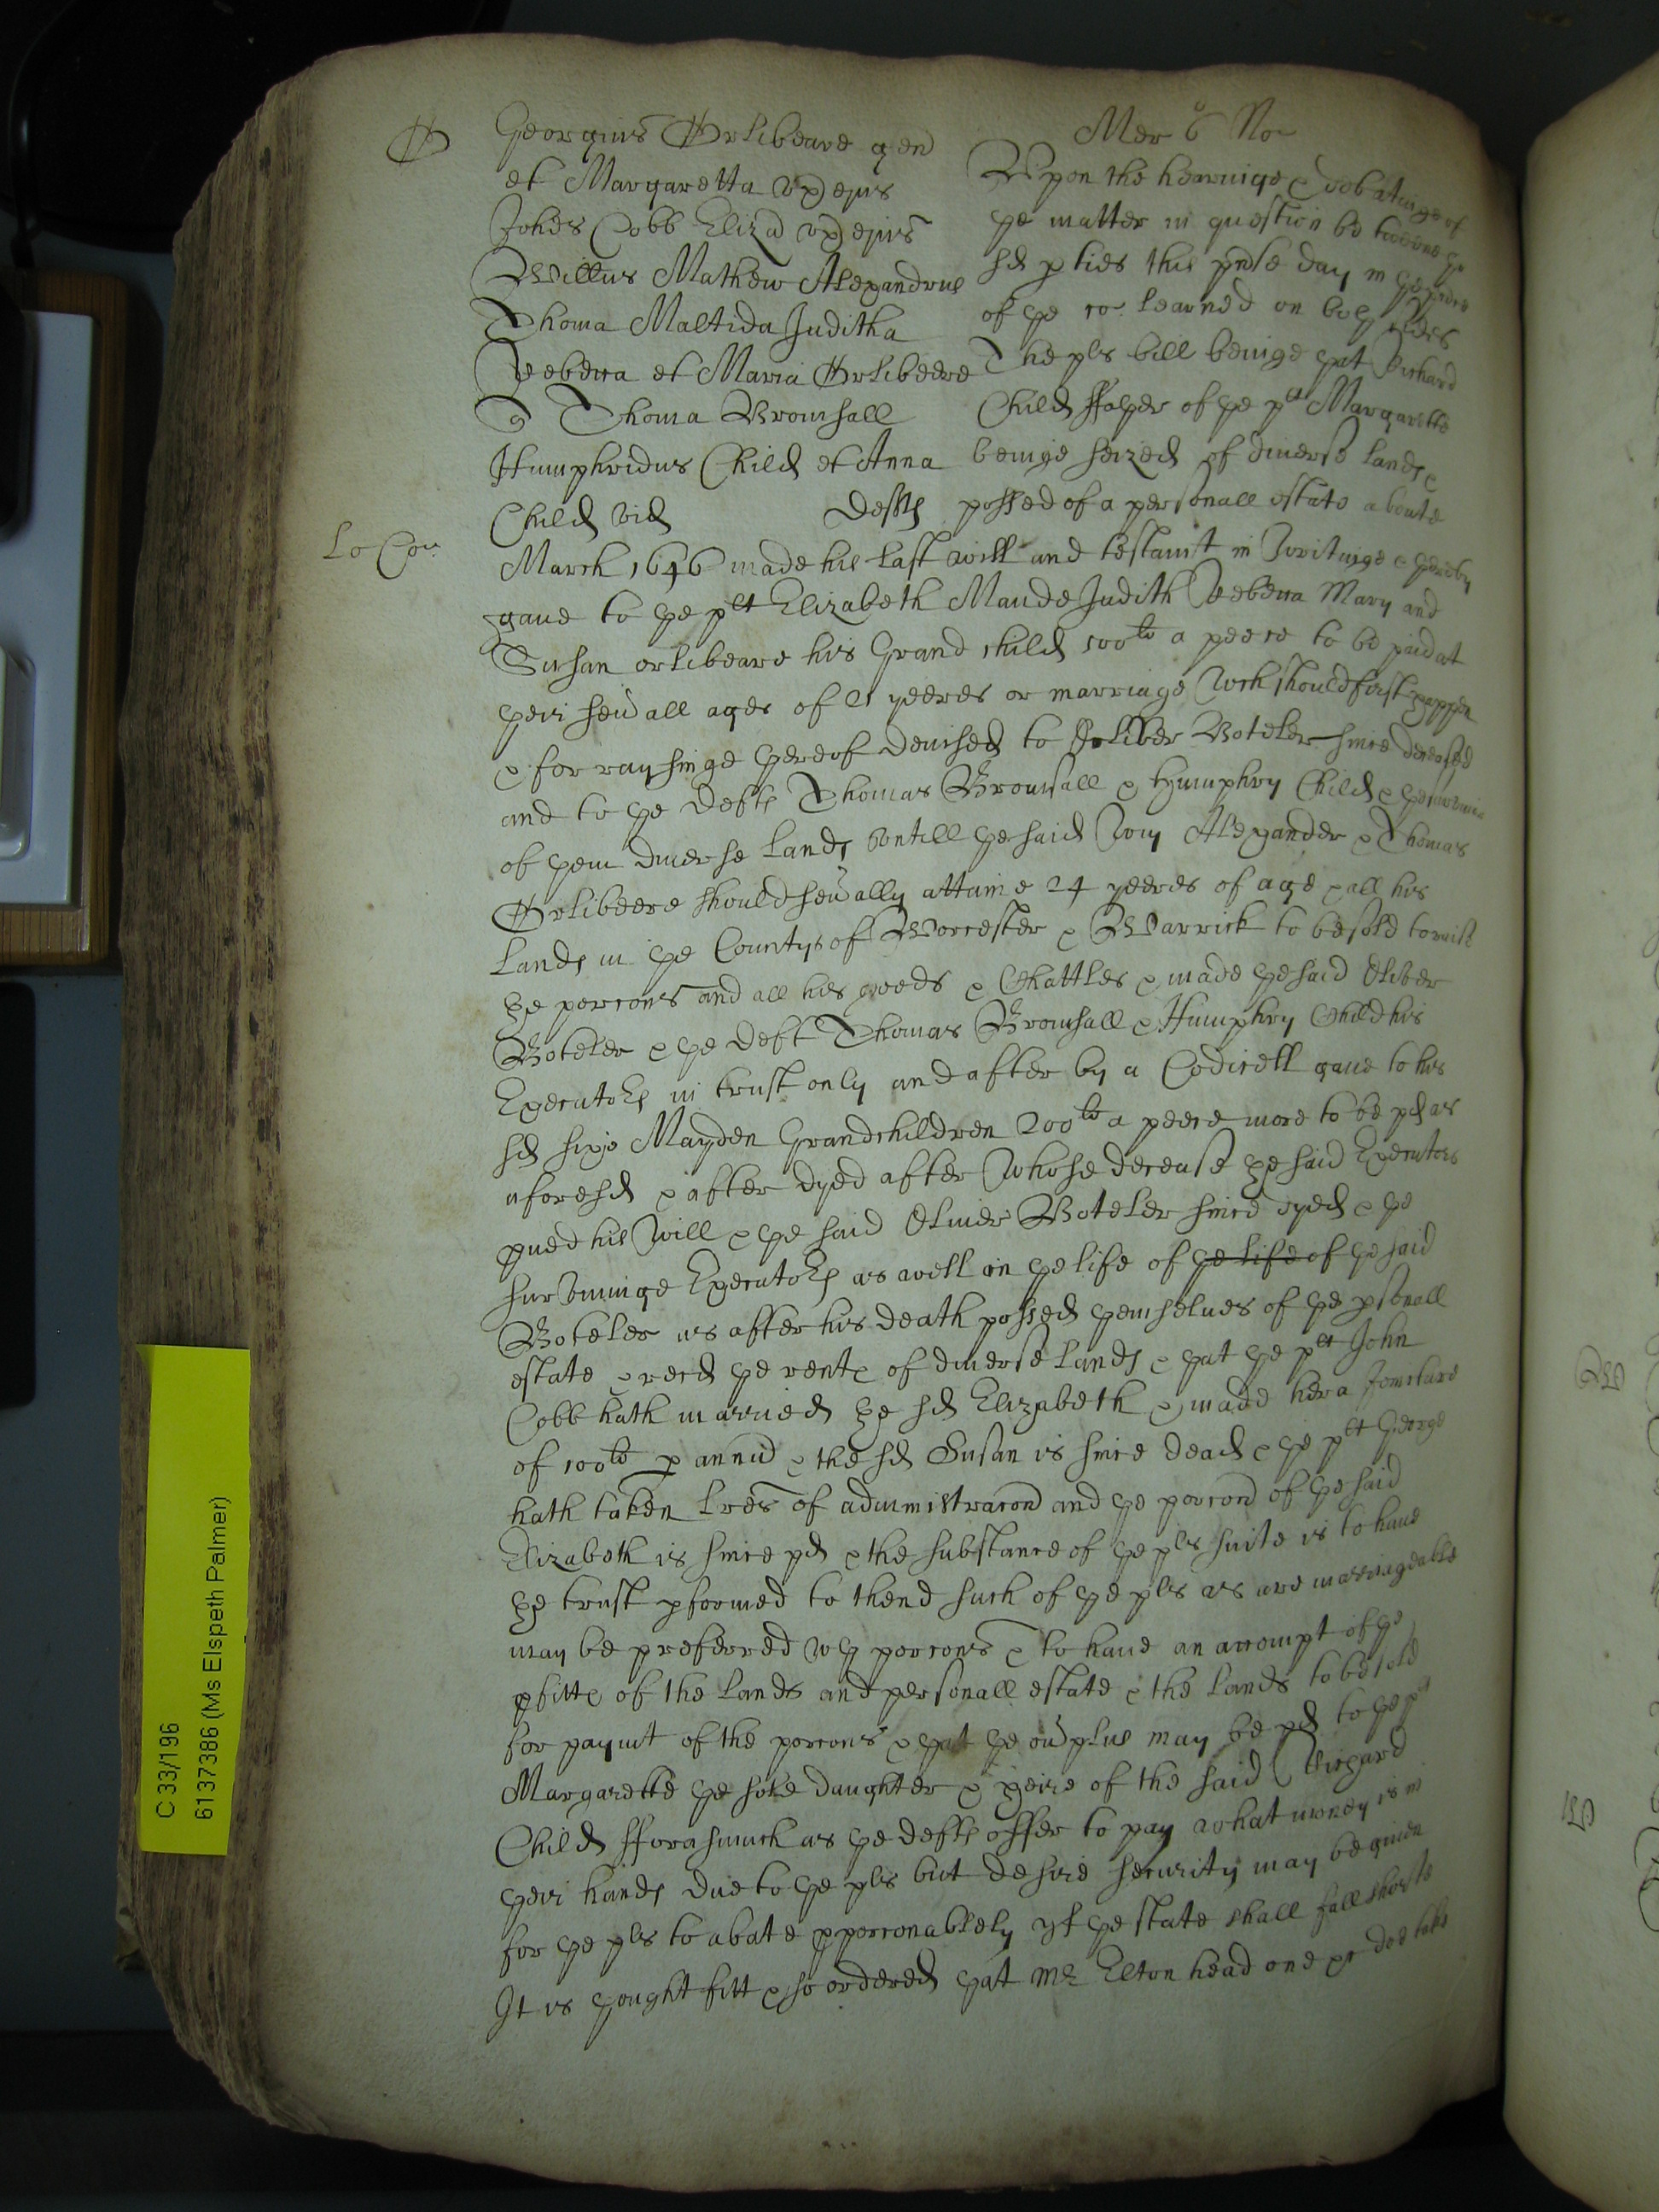 O
Georgius Orlibeare gen
et Margaretta ux ejus
Johes Cobb Eliza ux ejus
Willus Mathew Alexandrus
Thoma Maltida Juditha
Rebecca et Maria Orlibeere
Thoma Bromsall
Humphridus Child et Anna
Child vid Defts
Mer 6 No
Upon the hearinge & debatinge of
ye matter in question betweene ye
sd pties this pnte day in ye
of ye co learned on boy sides
The pls bill beinge yat Richard
Child ffayer of ye plt Margarette
beinge seized of diverse lands &
possed of a personall estate aboute
Lo Con
March 1646 made his last will and testamt in writinge & yereby
gave to ye plt Elizabeth Maude Judith Rebecca Mary and
Susan orlibeare his Grand child 500li a peece to be paid at
yeir seuall ages of 21 yeeres or marriage wch should first happen
& for raysinge yereof devised to Oliver Boteler since deceased
and to ye Defts Thomas Bromsall & Humphry Child & ye
of yem diverse lands vntill ye said Wm Alexander & Thomas
Orlibeere should seually attaine 24 yeeres of age & all his
Lands in ye Countys of Worcester & Warrick to be sold to raise
ye porcons and all his goods & Chattles & made ye said Oliver
Boteler & ye Deft Thomas Bromsall & Humphry Child his
Executors in trust only and after by a Codicell gave to his
sd sixe Mayden Grandchildren 200li a peece more to be pd as
aforesd & after dyed after whose decease ye said Executors
pued his will & ye said Oliver Boteler since dyed & ye
surviuinge Executors as well in ye life of ye life of ye said
Boteler as after his death possed yemselves of ye psonall
estate & recd ye rents of diverse lands & yat ye plt John
Cobb hath married ye sd Elizabeth & made her a Joincture
of 100li p annu & the sd Susan is since dead & ye plt George
hath taken lres of administracon and ye porcon of ye said
Elizabeth is since pd & the substance of ye pls suite is to have
ye trust pformed to thend such of ye pls as are marriageable
may be preferred wy porcons & to have an accompt of ye
pfitts of the lands and personall estate & the lands to be sold
for paymt of the porcons & yat ye ouplus may be pd to ye plt
Margarette ye sole daughter & heire of the said Richard
Child fforasmuch as ye defts offer to pay what money is in
yeir hands due to ye pls but desire security may be given
for ye pls to abate pporconablely yf ye state shall fall shorte
It is yought fitt & so ordered yat Mr Elton head one &c doe take
C 33/196
6137386 (Ms Elspeth Palmer)